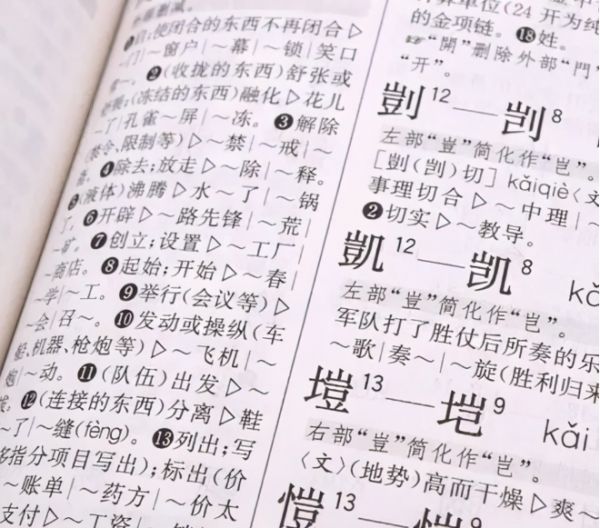 ❶启;使闭合的东西不再闭合▷
~门|~窗户|~幕|~锁|笑口
❷(收拢的东西)舒张或
(冻结的东西)融化▷花儿
~了|孔雀~屏|~冻。❸解除
(禁令、限制等)▷~禁|~戒|
❹除去;放走▷~除|~释。
(液体)沸腾▷水~了|~锅
了。❻开辟▷~路先锋|~荒
~矿。❼创立;设置▷~工厂|
~商店。❽起始;开始▷~春|
~学|~工。❾举行(会议等)▷
~会|召~。❿发动或操纵(车
船、机器、枪炮等)▷~飞机|~
炮|~动。⓫(队伍)出发▷~
拔。⓬(连接的东西)分离▷鞋
~了|~缝(fèng)。⓭列出;写
(多指分项目写出);标出(价
~账单|~药方|~价太
支付▷~工资|~销
算单位(24开为纯
的金项链。⓲姓。
☞“開”删除外部“門”
“开”。
剴12—剀8
左部“豈”简化作“岂”。
[剴(剀)切] kǎiqiè〈文
事理切合▷~中理|
❷切实▷~教导。
凱12—凯8 kǎ
左部“豈”简化作“岂”。
军队打了胜仗后所奏的乐
~歌|奏~|~旋(胜利归来
塏13—垲9 kǎi
右部“豈”简化作“岂”。
〈文〉(地势)高而干燥▷爽~
愷13—恺9